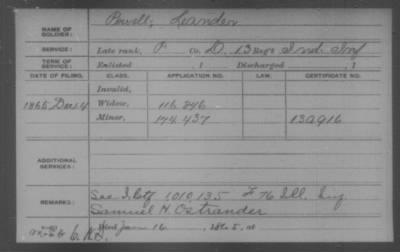 NAME OF SOLDIER: Powell, Leander
SERVICE: Late rank, P Co. D. 13 Reg't Ind. Inf
TERM OF SERVICE: Enlisted , 1 Discharged , 1
DATE OF FILING. CLASS. APPLICATION NO. LAW. CERTIFICATE NO.
Invalid,
1865 Dec 4 Widow, 116 846
Minor, 174 437 130916
ADDITIONAL SERVICES:
REMARKS: See I. Ctf 1010135 F 76 Ill. Inf.
Samuel H. Ostrander
Died Jan 16, 1865, at